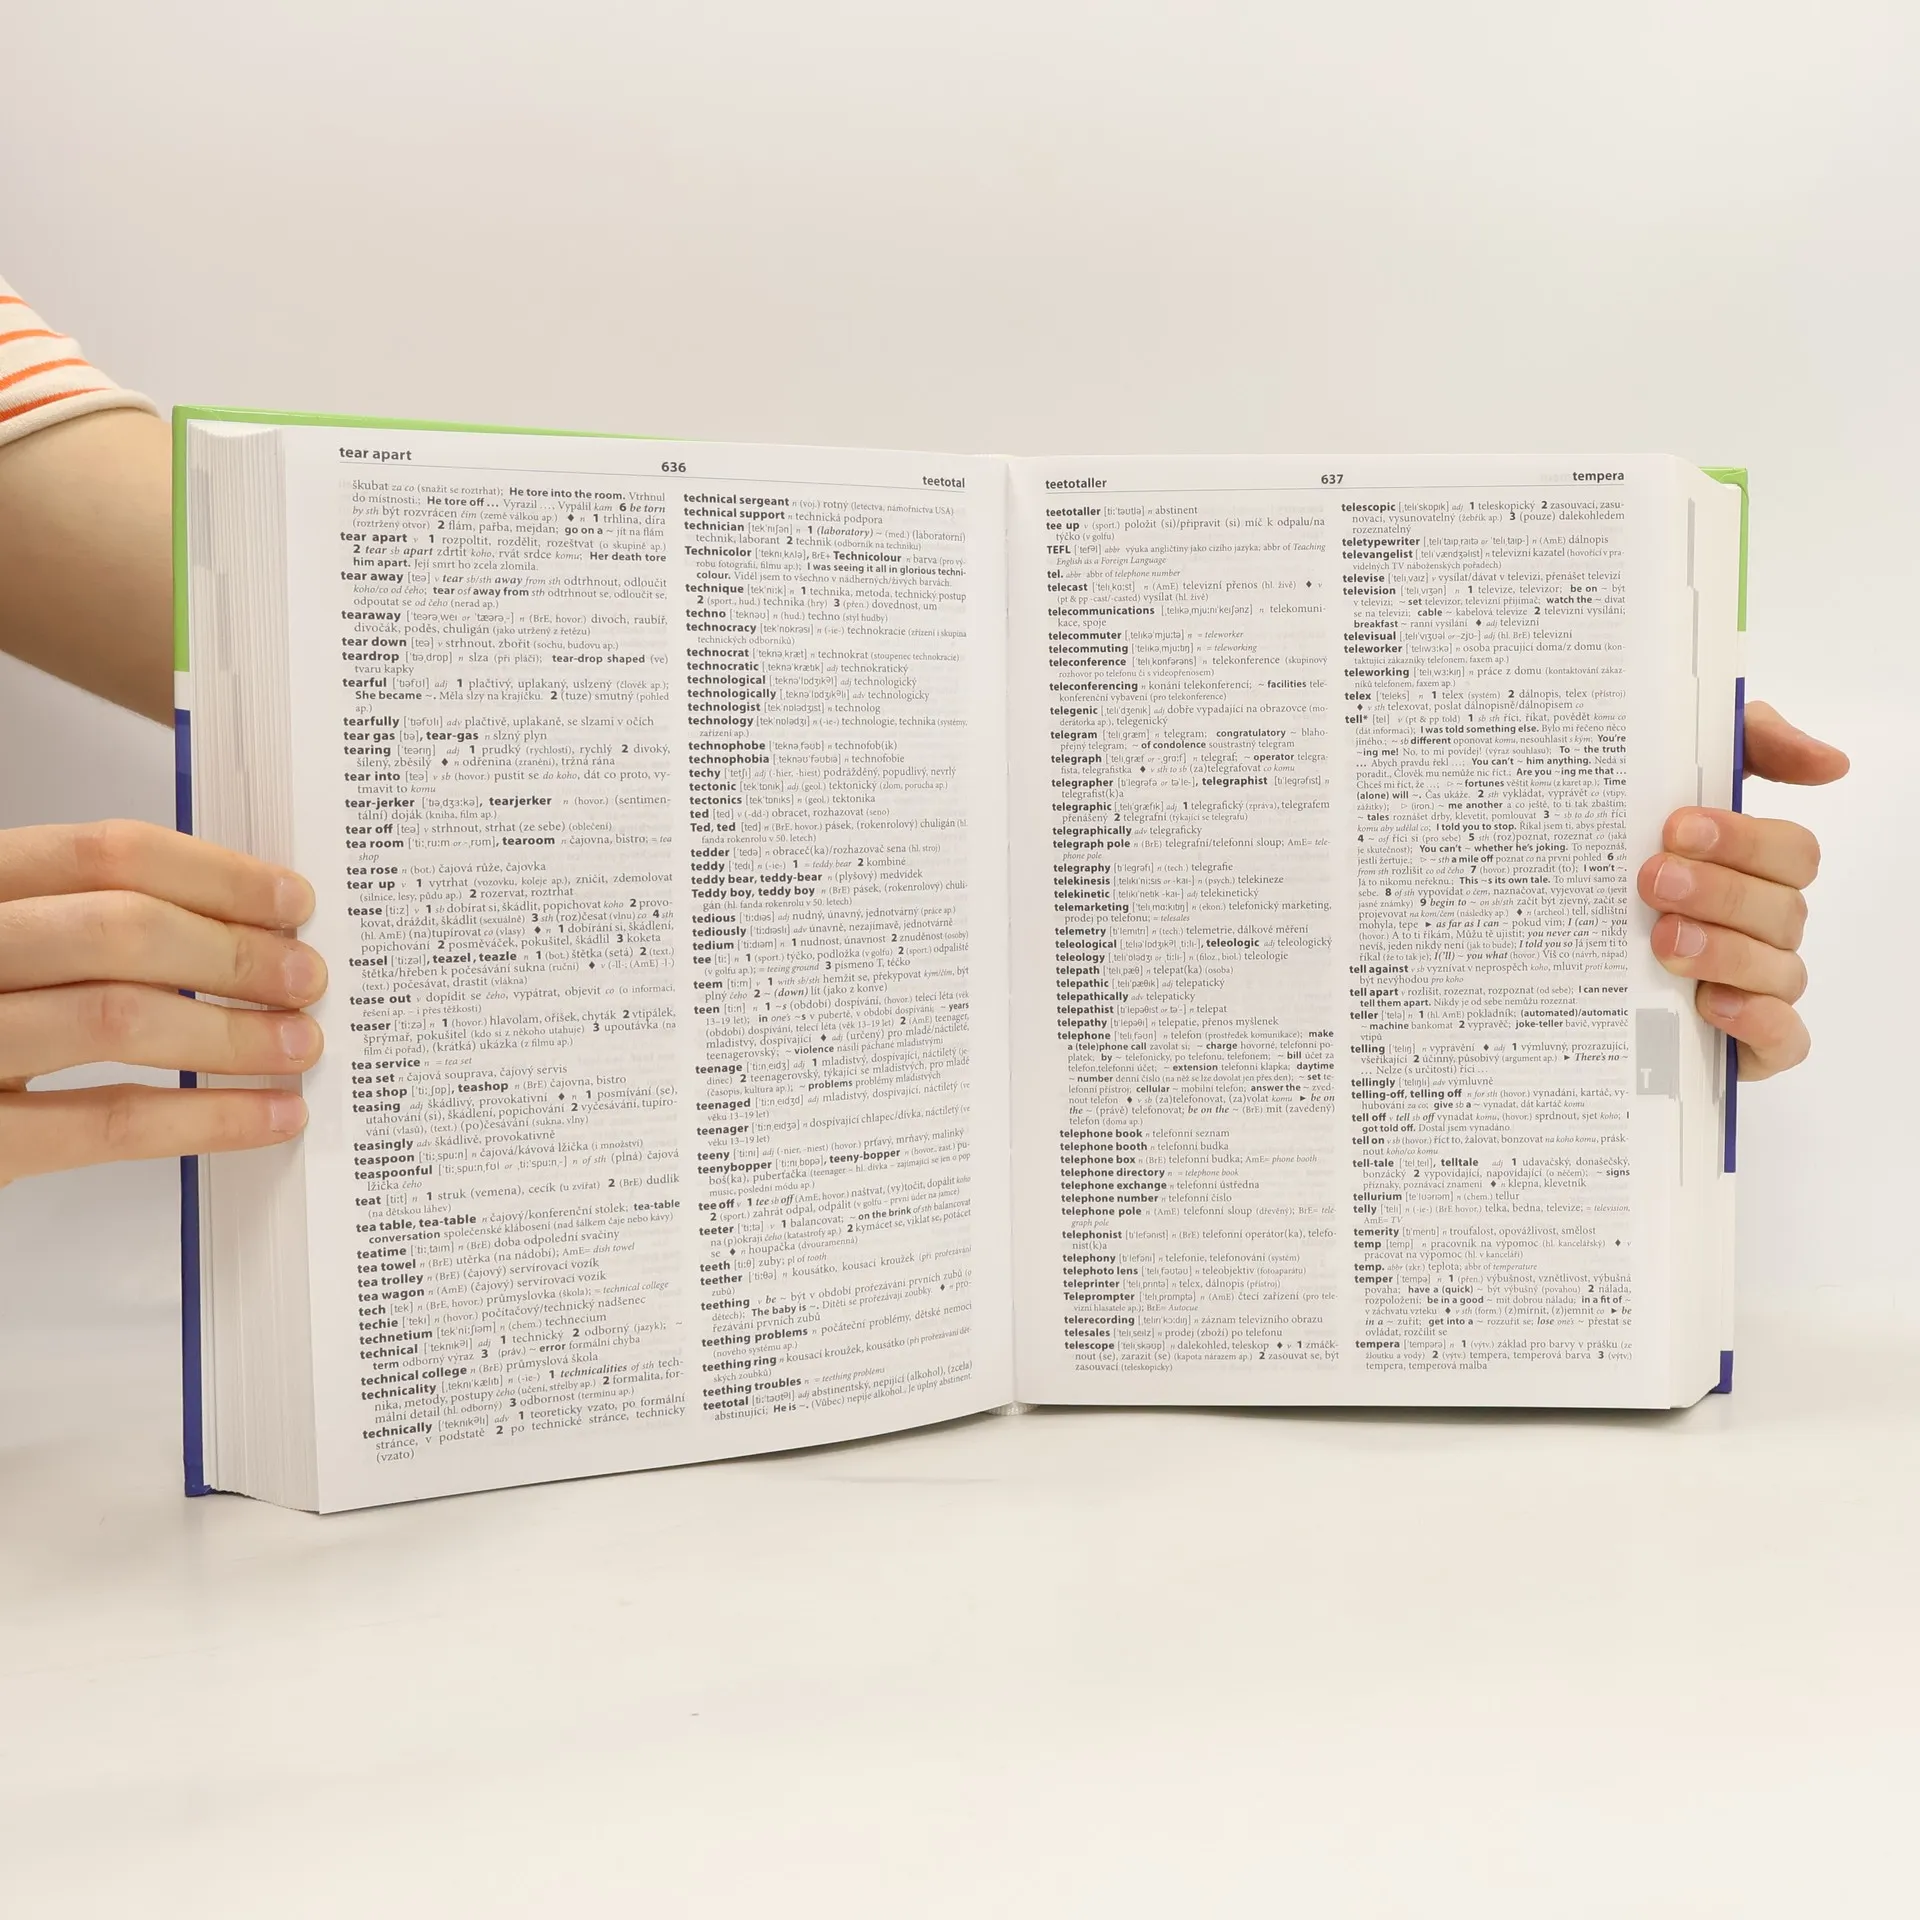 tear apart
636
teetotal
škubat za co (snažit se roztrhat); He tore into the room. Vtrhnul
do místnosti.; He tore off… Vyrazil …, Vypálil kam 6 be torn
by sth být rozvrácen čím (země válkou ap.) ♦ n 1 trhlina, díra
(roztržený otvor) 2 flám, pařba, mejdan; go on a ~ jít na flám
tear apart v 1 rozpoltit, rozdělit, rozeštvat (o skupině ap.)
2 tear sb apart zdrtit koho, rvát srdce komu; Her death tore
him apart. Její smrt ho zcela zlomila.
tear away [teə] v tear sb/sth away from sth odtrhnout, odloučit
koho/co od čeho; tear osf away from sth odtrhnout se, odloučit se,
odpoutat se od čeho (nerad ap.)
tearaway [ˈteərəˌweɪ or ˈtærə-] n (BrE, hovor.) divoch, raubíř,
divočák, poděs, chuligán (jako utržený z řetězu)
tear down [teə] v strhnout, zbořit (sochu, budovu ap.)
teardrop [ˈtɪəˌdrɒp] n slza (při pláči); tear-drop shaped (ve)
tvaru kapky
tearful [ˈtɪəfʊl] adj 1 plačtivý, uplakaný, uslzený (člověk ap.);
She became ~. Měla slzy na krajíčku. 2 (tuze) smutný (pohled
ap.)
tearfully [ˈtɪəfʊlɪ] adv plačtivě, uplakaně, se slzami v očích
tear gas [tɪə], tear-gas n slzný plyn
tearing [ˈteərɪŋ] adj 1 prudký (rychlostí), rychlý 2 divoký,
šílený, zběsilý ♦ n odřenina (zranění), tržná rána
tear into [teə] v sb (hovor.) pustit se do koho, dát co proto, vy-
tmavit to komu
tear-jerker [ˈtɪəˌdʒɜːkə], tearjerker n (hovor.) (sentimen-
tální) doják (kniha, film ap.)
tear off [teə] v strhnout, strhat (ze sebe) (oblečení)
tea room [ˈtiːˌruːm or -ˌrʊm], tearoom n čajovna, bistro; = tea
shop
tea rose n (bot.) čajová růže, čajovka
tear up v 1 vytrhat (vozovku, koleje ap.), zničit, zdemolovat
(silnice, lesy, půdu ap.) 2 rozervat, roztrhat
tease [tiːz] v 1 sb dobírat si, škádlit, popichovat koho 2 provo-
kovat, dráždit, škádlit (sexuálně) 3 sth (roz)česat (vlnu) co 4 sth
(hl. AmE) (na)tupírovat co (vlasy) ♦ n 1 dobírání si, škádlení,
popichování 2 posměváček, pokušitel, škádlil 3 koketa
teasel [ˈtiːzəl], teazel, teazle n 1 (bot.) štětka (setá) 2 (text.)
štětka/hřeben k počesávání sukna (ruční) ♦ v (-ll-; (AmE) -l-)
(text.) počesávat, drastit (vlákna)
tease out v dopídit se čeho, vypátrat, objevit co (o informaci,
řešení ap. – i přes těžkosti)
teaser [ˈtiːzə] n 1 (hovor.) hlavolam, oříšek, chyták 2 vtipálek,
šprýmař, pokušitel (kdo si z někoho utahuje) 3 upoutávka (na
film či pořad), (krátká) ukázka (z filmu ap.)
tea service n = tea set
tea set n čajová souprava, čajový servis
tea shop [ˈtiːˌʃɒp], teashop n (BrE) čajovna, bistro
teasing adj škádlivý, provokativní ♦ n 1 posmívání (se),
utahování (si), škádlení, popichování 2 vyčesávání, tupíro-
vání (vlasů), (text.) (po)česávání (sukna, vlny)
teasingly adv škádlivě, provokativně
teaspoon [ˈtiːˌspuːn] n čajová/kávová lžička (i množství)
teaspoonful [ˈtiːˌspuːnˌfʊl or ˌtiːˈspuːn-] n of sth (plná) čajová
lžička čeho
teat [tiːt] n 1 struk (vemena), cecík (u zvířat) 2 (BrE) dudlík
(na dětskou láhev)
tea table, tea-table n čajový/konferenční stolek; tea-table
conversation společenské klábosení (nad šálkem čaje nebo kávy)
teatime [ˈtiːˌtaɪm] n (BrE) doba odpolední svačiny
tea towel n (BrE) utěrka (na nádobí); AmE= dish towel
tea trolley n (BrE) (čajový) servírovací vozík
tea wagon n (AmE) (čajový) servírovací vozík
tech [tek] n (BrE, hovor.) průmyslovka (škola); = technical college
techie [ˈtekɪ] n (hovor.) počítačový/technický nadšenec
technetium [tekˈniːʃɪəm] n (chem.) technecium
technical [ˈteknɪkəl] adj 1 technický 2 odborný (jazyk); ~
term odborný výraz 3 (práv.) ~ error formální chyba
technical college n (BrE) průmyslová škola
technicality [ˌteknɪˈkælɪtɪ] n (-ie-) 1 technicalities of sth tech-
nika, metody, postupy čeho (učení, střelby ap.) 2 formalita, for-
mální detail (hl. odborný) 3 odbornost (termínu ap.)
technically [ˈteknɪkəlɪ] adv 1 teoreticky vzato, po formální
stránce, v podstatě 2 po technické stránce, technicky
(vzato)
technical sergeant n (voj.) rotný (letectva, námořnictva USA)
technical support n technická podpora
technician [tekˈnɪʃən] n 1 (laboratory) ~ (med.) (laboratorní)
technik, laborant 2 technik (odborník na techniku)
Technicolor [ˈteknɪˌkʌlə], BrE+ Technicolour n barva (pro vý-
robu fotografií, filmu ap.); I was seeing it all in glorious techni-
colour. Viděl jsem to všechno v nádherných/živých barvách.
technique [tekˈniːk] n 1 technika, metoda, technický postup
2 (sport., hud.) technika (hry) 3 (přen.) dovednost, um
techno [ˈteknəʊ] n (hud.) techno (styl hudby)
technocracy [tekˈnɒkrəsɪ] n (-ie-) technokracie (zřízení i skupina
technických odborníků)
technocrat [ˈteknəˌkræt] n technokrat (stoupenec technokracie)
technocratic [ˌteknəˈkrætɪk] adj technokratický
technological [ˌteknəˈlɒdʒɪkəl] adj technologický
technologically [ˌteknəˈlɒdʒɪkəlɪ] adv technologicky
technologist [tekˈnɒlədʒɪst] n technolog
technology [tekˈnɒlədʒɪ] n (-ie-) technologie, technika (systémy,
zařízení ap.)
technophobe [ˈteknəˌfəʊb] n technofob(ik)
technophobia [ˌteknəʊˈfəʊbɪə] n technofobie
techy [ˈtetʃɪ] adj (-hier, -hiest) podrážděný, popudlivý, nevrlý
tectonic [tekˈtɒnɪk] adj (geol.) tektonický (zlom, porucha ap.)
tectonics [tekˈtɒnɪks] n (geol.) tektonika
ted [ted] v (-dd-) obracet, rozhazovat (seno)
Ted, ted [ted] n (BrE, hovor.) pásek, (rokenrolový) chuligán (hl.
fanda rokenrolu v 50. letech)
tedder [ˈtedə] n obraceč(ka)/rozhazovač sena (hl. stroj)
teddy [ˈtedɪ] n (-ie-) 1 = teddy bear 2 kombiné
teddy bear, teddy-bear n (plyšový) medvídek
Teddy boy, teddy boy n (BrE) pásek, (rokenrolový) chuli-
gán (hl. fanda rokenrolu v 50. letech)
tedious [ˈtiːdɪəs] adj nudný, únavný, jednotvárný (práce ap.)
tediously [ˈtiːdɪəslɪ] adv únavně, nezajímavě, jednotvárně
tedium [ˈtiːdɪəm] n 1 nudnost, únavnost 2 znuděnost (osoby)
tee [tiː] n 1 (sport.) týčko, podložka (v golfu) 2 (sport.) odpaliště
(v golfu ap.); = teeing ground 3 písmeno T, téčko
teem [tiːm] v 1 with sb/sth hemžit se, překypovat kým/čím, být
plný čeho 2 ~ (down) lít (jako z konve)
teen [tiːn] n 1 ~s (období) dospívání, (hovor.) telecí léta (věk
13–19 let); in one's ~s v pubertě, v období dospívání; ~ years
(období) dospívání, telecí léta (věk 13–19 let) 2 (AmE) teenager,
mladistvý, dospívající ♦ adj (určený) pro mladé/náctileté,
teenagerovský; ~ violence násilí páchané mladistvými
teenage [ˈtiːnˌeɪdʒ] adj 1 mladistvý, dospívající, náctiletý (je-
dinec) 2 teenagerovský, týkající se mladistvých, pro mladé
(časopis, kultura ap.); ~ problems problémy mladistvých
teenaged [ˈtiːnˌeɪdʒd] adj mladistvý, dospívající, náctiletý (ve
věku 13–19 let)
teenager [ˈtiːnˌeɪdʒə] n dospívající chlapec/dívka, náctiletý (ve
věku 13–19 let)
teeny [ˈtiːnɪ] adj (-nier, -niest) (hovor.) prťavý, mrňavý, malinký
teenybopper [ˈtiːnɪˌbɒpə], teeny-bopper n (hovor., zast.) pu-
boš(ka), puberťačka (teenager – hl. dívka – zajímající se jen o pop
music, poslední módu ap.)
tee off v 1 tee sb off (AmE, hovor.) naštvat, (vy)točit, dopálit koho
2 (sport.) zahrát odpal, odpálit (v golfu – první úder na jamce)
teeter [ˈtiːtə] v 1 balancovat; ~ on the brink of sth balancovat
na (p)okraji čeho (katastrofy ap.) 2 kymácet se, viklat se, potácet
se ♦ n houpačka (dvouramenná)
teeth [tiːθ] zuby; pl of tooth
teether [ˈtiːðə] n kousátko, kousací kroužek (při prořezávání
zubů)
teething v be ~ být v období prořezávání prvních zubů (o
dětech); The baby is ~. Dítěti se prořezávají zoubky. ♦ n pro-
řezávání prvních zubů
teething problems n počáteční problémy, dětské nemoci
(nového systému ap.)
teething ring n kousací kroužek, kousátko (při prořezávání dět-
ských zoubků)
teething troubles n = teething problems
teetotal [tiːˈtəʊtəl] adj abstinentský, nepijící (alkohol), (zcela)
abstinující; He is ~. (Vůbec) nepije alkohol., Je úplný abstinent.
teetotaller
637
tempera
teetotaller [tiːˈtəʊtlə] n abstinent
tee up v (sport.) položit (si)/připravit (si) míč k odpalu/na
týčko (v golfu)
TEFL [ˈtefəl] abbr výuka angličtiny jako cizího jazyka; abbr of Teaching
English as a Foreign Language
tel. abbr abbr of telephone number
telecast [ˈtelɪˌkɑːst] n (AmE) televizní přenos (hl. živě) ♦ v
(pt & pp -cast/-casted) vysílat (hl. živě)
telecommunications [ˌtelɪkəˌmjuːnɪˈkeɪʃənz] n telekomuni-
kace, spoje
telecommuter [ˌtelɪkəˈmjuːtə] n = teleworker
telecommuting [ˈtelɪkəˌmjuːtɪŋ] n = teleworking
teleconference [ˈtelɪˌkɒnfərəns] n telekonference (skupinový
rozhovor po telefonu či s videopřenosem)
teleconferencing n konání telekonferencí; ~ facilities tele-
konferenční vybavení (pro telekonference)
telegenic [ˌtelɪˈdʒenɪk] adj dobře vypadající na obrazovce (mo-
derátorka ap.), telegenický
telegram [ˈtelɪˌgræm] n telegram; congratulatory ~ blaho-
přejný telegram; ~ of condolence soustrastný telegram
telegraph [ˈtelɪˌgræf or -ˌgrɑːf] n telegraf; ~ operator telegra-
fista, telegrafistka ♦ v sth to sb (za)telegrafovat co komu
telegrapher [tɪˈlegrəfə or təˈle-], telegraphist [tɪˈlegrəfɪst] n
telegrafist(k)a
telegraphic [ˌtelɪˈgræfɪk] adj 1 telegrafický (zpráva), telegrafem
přenášený 2 telegrafní (týkající se telegrafu)
telegraphically adv telegraficky
telegraph pole n (BrE) telegrafní/telefonní sloup; AmE= tele-
phone pole
telegraphy [tɪˈlegrəfɪ] n (tech.) telegrafie
telekinesis [ˌtelɪkɪˈniːsɪs or -kaɪ-] n (psych.) telekineze
telekinetic [ˌtelɪkɪˈnetɪk -kaɪ-] adj telekinetický
telemarketing [ˈtelɪˌmɑːkɪtɪŋ] n (ekon.) telefonický marketing,
prodej po telefonu; = telesales
telemetry [tɪˈlemɪtrɪ] n (tech.) telemetrie, dálkové měření
teleological [ˌtelɪəˈlɒdʒɪkəl ˌtiːlɪ-], teleologic adj teleologický
teleology [ˌtelɪˈɒlədʒɪ or ˌtiːlɪ-] n (filoz., biol.) teleologie
telepath [ˈtelɪˌpæθ] n telepat(ka) (osoba)
telepathic [ˌtelɪˈpæθɪk] adj telepatický
telepathically adv telepaticky
telepathist [tɪˈlepəθɪst or tə-] n telepat
telepathy [tɪˈlepəθɪ] n telepatie, přenos myšlenek
telephone [ˈtelɪˌfəʊn] n telefon (prostředek komunikace); make
a (tele)phone call zavolat si; ~ charge hovorné, telefonní po-
platek; by ~ telefonicky, po telefonu, telefonem; ~ bill účet za
telefon,telefonní účet; ~ extension telefonní klapka; daytime
~ number denní číslo (na něž se lze dovolat jen přes den); ~ set te-
lefonní přístroj; cellular ~ mobilní telefon; answer the ~ zved-
nout telefon ♦ v sb (za)telefonovat, (za)volat komu ► be on
the ~ (právě) telefonovat; be on the ~ (BrE) mít (zavedený)
telefon (doma ap.)
telephone book n telefonní seznam
telephone booth n telefonní budka
telephone box n (BrE) telefonní budka; AmE= phone booth
telephone directory n = telephone book
telephone exchange n telefonní ústředna
telephone number n telefonní číslo
telephone pole n (AmE) telefonní sloup (dřevěný); BrE= tele-
graph pole
telephonist [tɪˈlefənɪst] n (BrE) telefonní operátor(ka), telefo-
nist(k)a
telephony [tɪˈlefənɪ] n telefonie, telefonování (systém)
telephoto lens [ˈtelɪˌfəʊtəʊ] n teleobjektiv (fotoaparátu)
teleprinter [ˈtelɪˌprɪntə] n telex, dálnopis (přístroj)
Teleprompter [ˈtelɪˌprɒmptə] n (AmE) čtecí zařízení (pro tele-
vizní hlasatele ap.); BrE= Autocue
telerecording [ˈtelɪrɪˌkɔːdɪŋ] n záznam televizního obrazu
telesales [ˈtelɪˌseɪlz] n prodej (zboží) po telefonu
telescope [ˈtelɪˌskəʊp] n dalekohled, teleskop ♦ v 1 zmáčk-
nout (se), zarazit (se) (kapota nárazem ap.) 2 zasouvat se, být
zasouvací (teleskopicky)
telescopic [ˌtelɪˈskɒpɪk] adj 1 teleskopický 2 zasouvací, zasu-
novací, vysunovatelný (žebřík ap.) 3 (pouze) dalekohledem
rozeznatelný
teletypewriter [ˌtelɪˈtaɪpˌraɪtə or ˈtelɪˌtaɪp-] n (AmE) dálnopis
televangelist [ˌtelɪˈvændʒəlɪst] n televizní kazatel (hovořící v pra-
videlných TV náboženských pořadech)
televise [ˈtelɪˌvaɪz] v vysílat/dávat v televizi, přenášet televizí
television [ˈtelɪˌvɪʒən] n 1 televize, televizor; be on ~ být
v televizi; ~ set televizor, televizní přijímač; watch the ~ dívat
se na televizi; cable ~ kabelová televize 2 televizní vysílání;
breakfast ~ ranní vysílání ♦ adj televizní
televisual [ˌtelɪˈvɪʒʊəl or -zjʊ-] adj (hl. BrE) televizní
teleworker [ˈtelɪwɜːkə] n osoba pracující doma/z domu (kon-
taktující zákazníky telefonem, faxem ap.)
teleworking [ˈtelɪˌwɜːkɪŋ] n práce z domu (kontaktování zákaz-
níků telefonem, faxem ap.)
telex [ˈteleks] n 1 telex (systém) 2 dálnopis, telex (přístroj)
♦ v sth telexovat, poslat dálnopisně/dálnopisem co
tell* [tel] v (pt & pp told) 1 sb sth říci, říkat, povědět komu co
(dát informaci); I was told something else. Bylo mi řečeno něco
jiného.; ~ sb different oponovat komu, nesouhlasit s kým; You're
~ing me! No, to mi povídej! (výraz souhlasu); To ~ the truth
… Abych pravdu řekl …; You can't ~ him anything. Nedá si
poradit., Člověk mu nemůže nic říct.; Are you ~ing me that …
Chceš mi říct, že …; ~ fortunes věštit komu (z karet ap.); Time
(alone) will ~. Čas ukáže. 2 sth vykládat, vyprávět co (vtipy,
zážitky); ▷ (iron.) ~ me another a co ještě, to ti tak zbaštím;
~ tales roznášet drby, klevetit, pomlouvat 3 ~ sb to do sth říci
komu aby udělal co; I told you to stop. Říkal jsem ti, abys přestal.
4 ~ osf říci si (pro sebe) 5 sth (roz)poznat, rozeznat co (jaká
je skutečnost); You can't ~ whether he's joking. To nepoznáš,
jestli žertuje.; ▷ ~ sth a mile off poznat co na první pohled 6 sth
from sth rozlišit co od čeho 7 (hovor.) prozradit (to); I won't ~.
Já to nikomu neřeknu.; This ~s its own tale. To mluví samo za
sebe. 8 of sth vypovídat o čem, naznačovat, vyjevovat co (jevit
jasné známky) 9 begin to ~ on sb/sth začít být zjevný, začít se
projevovat na kom/čem (následky ap.) ♦ n (archeol.) tell, sídlištní
mohyla, tepe ► as far as I can ~ pokud vím; I (can) ~ you
(hovor.) A to ti říkám, Můžu tě ujistit; you never can ~ nikdy
nevíš, jeden nikdy neví (jak to bude); I told you so Já jsem ti to
říkal (že to tak je); I('ll) ~ you what (hovor.) Víš co (návrh, nápad)
tell against v sb vyznívat v neprospěch koho, mluvit proti komu,
být nevýhodou pro koho
tell apart v rozlišit, rozeznat, rozpoznat (od sebe); I can never
tell them apart. Nikdy je od sebe nemůžu rozeznat.
teller [ˈtelə] n 1 (hl. AmE) pokladník; (automated)/automatic
~ machine bankomat 2 vypravěč; joke-teller bavič, vypravěč
vtipů
telling [ˈtelɪŋ] n vyprávění ♦ adj 1 výmluvný, prozrazující,
všeříkající 2 účinný, působivý (argument ap.) ► There's no ~
… Nelze (s určitostí) říci …
tellingly [ˈtelɪŋlɪ] adv výmluvně
telling-off, telling off n for sth (hovor.) vynadání, kartáč, vy-
hubování za co; give sb a ~ vynadat, dát kartáč komu
tell off v tell sb off vynadat komu, (hovor.) sprdnout, sjet koho; I
got told off. Dostal jsem vynadáno.
tell on v sb (hovor.) říct to, žalovat, bonzovat na koho komu, prásk-
nout koho/co komu
tell-tale [ˈtelˌteɪl], telltale adj 1 udavačský, donašečský,
bonzácký 2 vypovídající, napovídající (o něčem); ~ signs
příznaky, poznávací znamení ♦ n klepna, klevetník
tellurium [teˈlʊərɪəm] n (chem.) tellur
telly [ˈtelɪ] n (-ie-) (BrE hovor.) telka, bedna, televize; = television,
AmE= TV
temerity [tɪˈmerɪtɪ] n troufalost, opovážlivost, smělost
temp [temp] n pracovník na výpomoc (hl. kancelářský) ♦ v
pracovat na výpomoc (hl. v kanceláři)
temp. abbr (zkr.) teplota; abbr of temperature
temper [ˈtempə] n 1 (přen.) výbušnost, vznětlivost, výbušná
povaha; have a (quick) ~ být výbušný (povahou) 2 nálada,
rozpoložení; be in a good ~ mít dobrou náladu; in a fit of ~
v záchvatu vzteku ♦ v sth (form.) (z)mírnit, (z)jemnit co ► be
in a ~ zuřit; get into a ~ rozzuřit se; lose one's ~ přestat se
ovládat, rozčílit se
tempera [ˈtempərə] n 1 (výtv.) základ pro barvy v prášku (ze
žloutku a vody) 2 (výtv.) tempera, temperová barva 3 (výtv.)
tempera, temperová malba
T